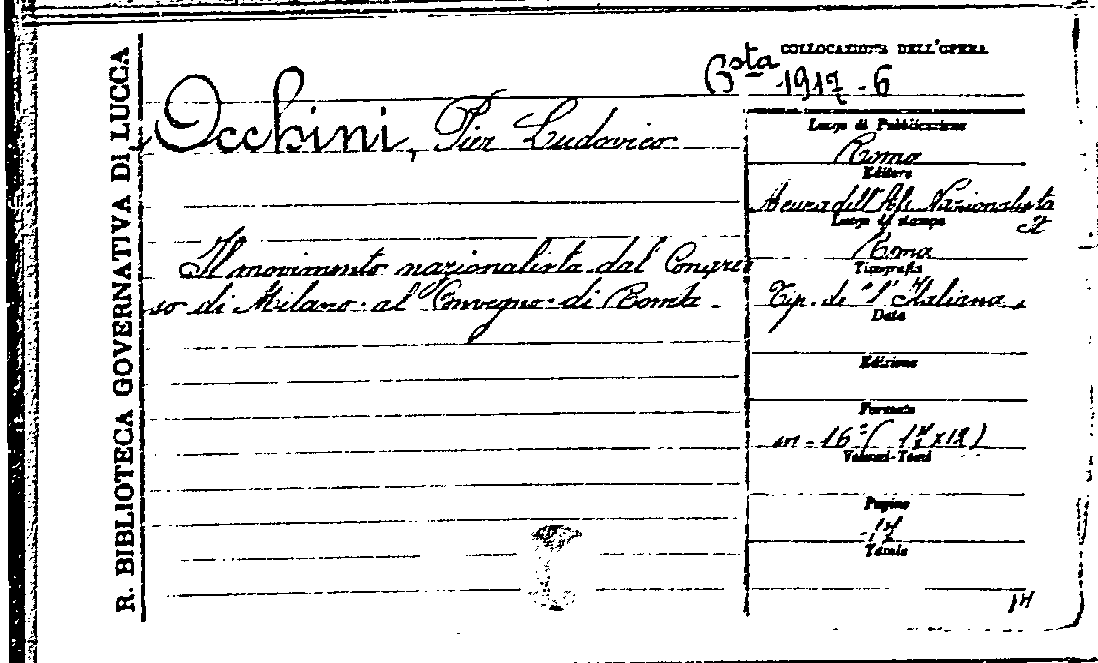 R. BIBLIOTECA GOVERNATIVA DI LUCCA
COLLOCAZIONE DELL'OPERA
Bsta 1917-6
Occhini, Pier Ludovico
Il movimento nazionalista dal Congres
so di Milano al Convegno di Roma.
Luogo di Pubblicazione
Roma
Editore
A cura dell'Ass. Nazionalista
It
Luogo di stampa
Roma
Tipografia
Tip. de "l'Italiana"
Data
Edizione
Formato
in-16°
Volumi-Tomi
Pagine
17
Tavole